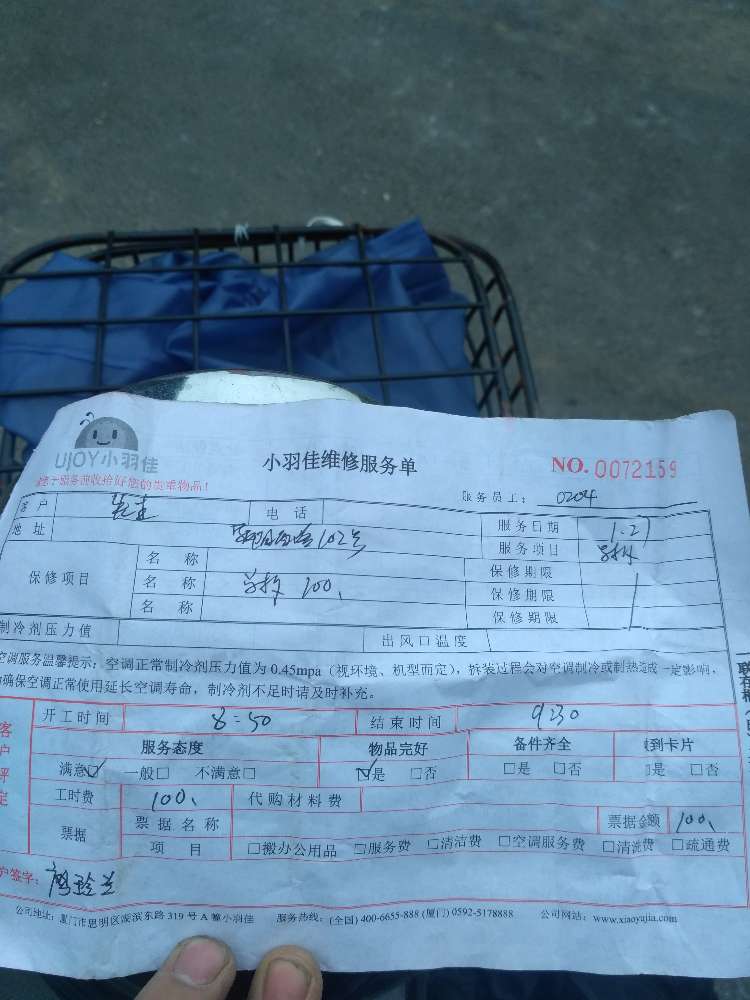 UJOY小羽佳
小羽佳维修服务单
NO. 0072159
服务员工: 0204
客户 电话 服务日期 1.27
地址 102 服务项目
保修项目 名称 保修期限
名称 100、 保修期限
名称 保修期限
制冷剂压力值 出风口温度
空调服务温馨提示:空调正常制冷剂压力值为0.45mpa(视环境、机型而定),拆装过程会对空调制冷或制热造成一定影响,
确保空调正常使用延长空调寿命,制冷剂不足时请及时补充。
开工时间 8:50 结束时间 9:30
客户评定
服务态度 物品完好 备件齐全 收到卡片
满意☑ 一般□ 不满意□ ☑是 □否 □是 □否 □是 □否
工时费 100、 代购材料费
票据 票据名称 票据金额 100、
项目 □搬办公用品 □服务费 □清洁费 □空调服务费 □清洗费 □疏通费
户签字:
公司地址:厦门市思明区湖滨东路319号A幢小羽佳 服务热线:(全国)400-6655-888 (厦门)0592-5178888 公司网站:www.xiaoyujia.com